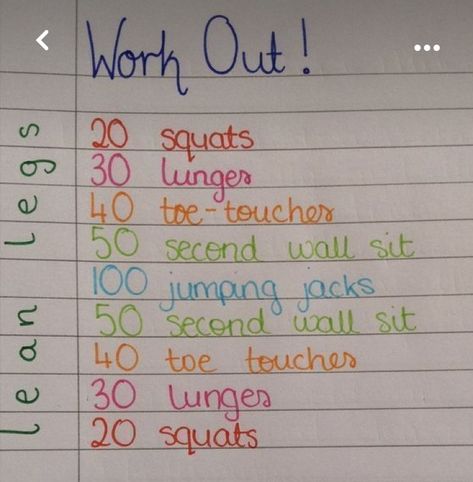 Work Out!
20 squats
30 lunges
40 toe-touches
50 second wall sit
100 jumping jacks
50 second wall sit
40 toe touches
30 lunges
20 squats
lean legs